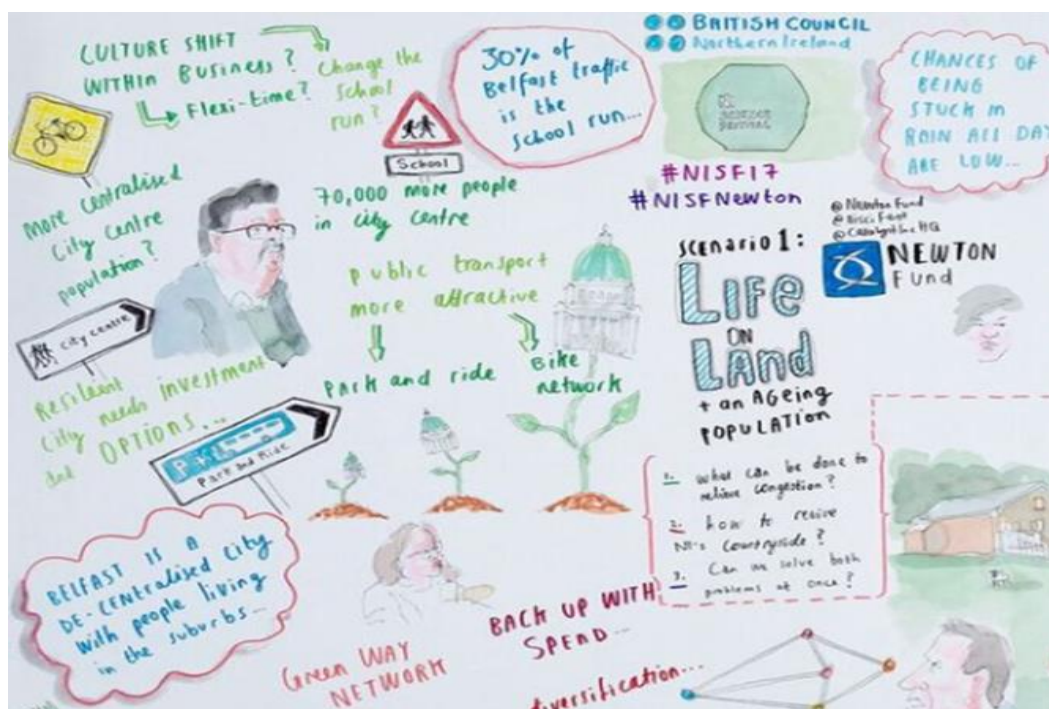 CULTURE SHIFT
WITHIN BUSINESS?
Flexi-time?
Change the
school
run?
School
30% of
Belfast traffic
is the
school run...
BRITISH COUNCIL
Northern Ireland
SCIENCE
FESTIVAL
#NISF17
#NISFNewton
CHANCES OF
BEING
STUCK IN
RAIN ALL DAY
ARE LOW...
@Newton Fund
NEWTON
Fund
more centralised
city centre
population?
70,000 more people
in city centre
City centre
public transport
more attractive
Park and ride
Bike
network
Resilient
City needs investment
and OPTIONS...
Park and Ride
SCENARIO 1:
LIFE
ON
LAND
+ an AGEING
POPULATION
1. what can be done to
relieve congestion?
2. how to revive
NI's countryside?
3. Can we solve both
problems at once?
BELFAST IS A
DE-CENTRALISED CITY
with people living
in the suburbs...
Green WAY
NETWORK
BACK UP WITH
SPEND...
diversification...